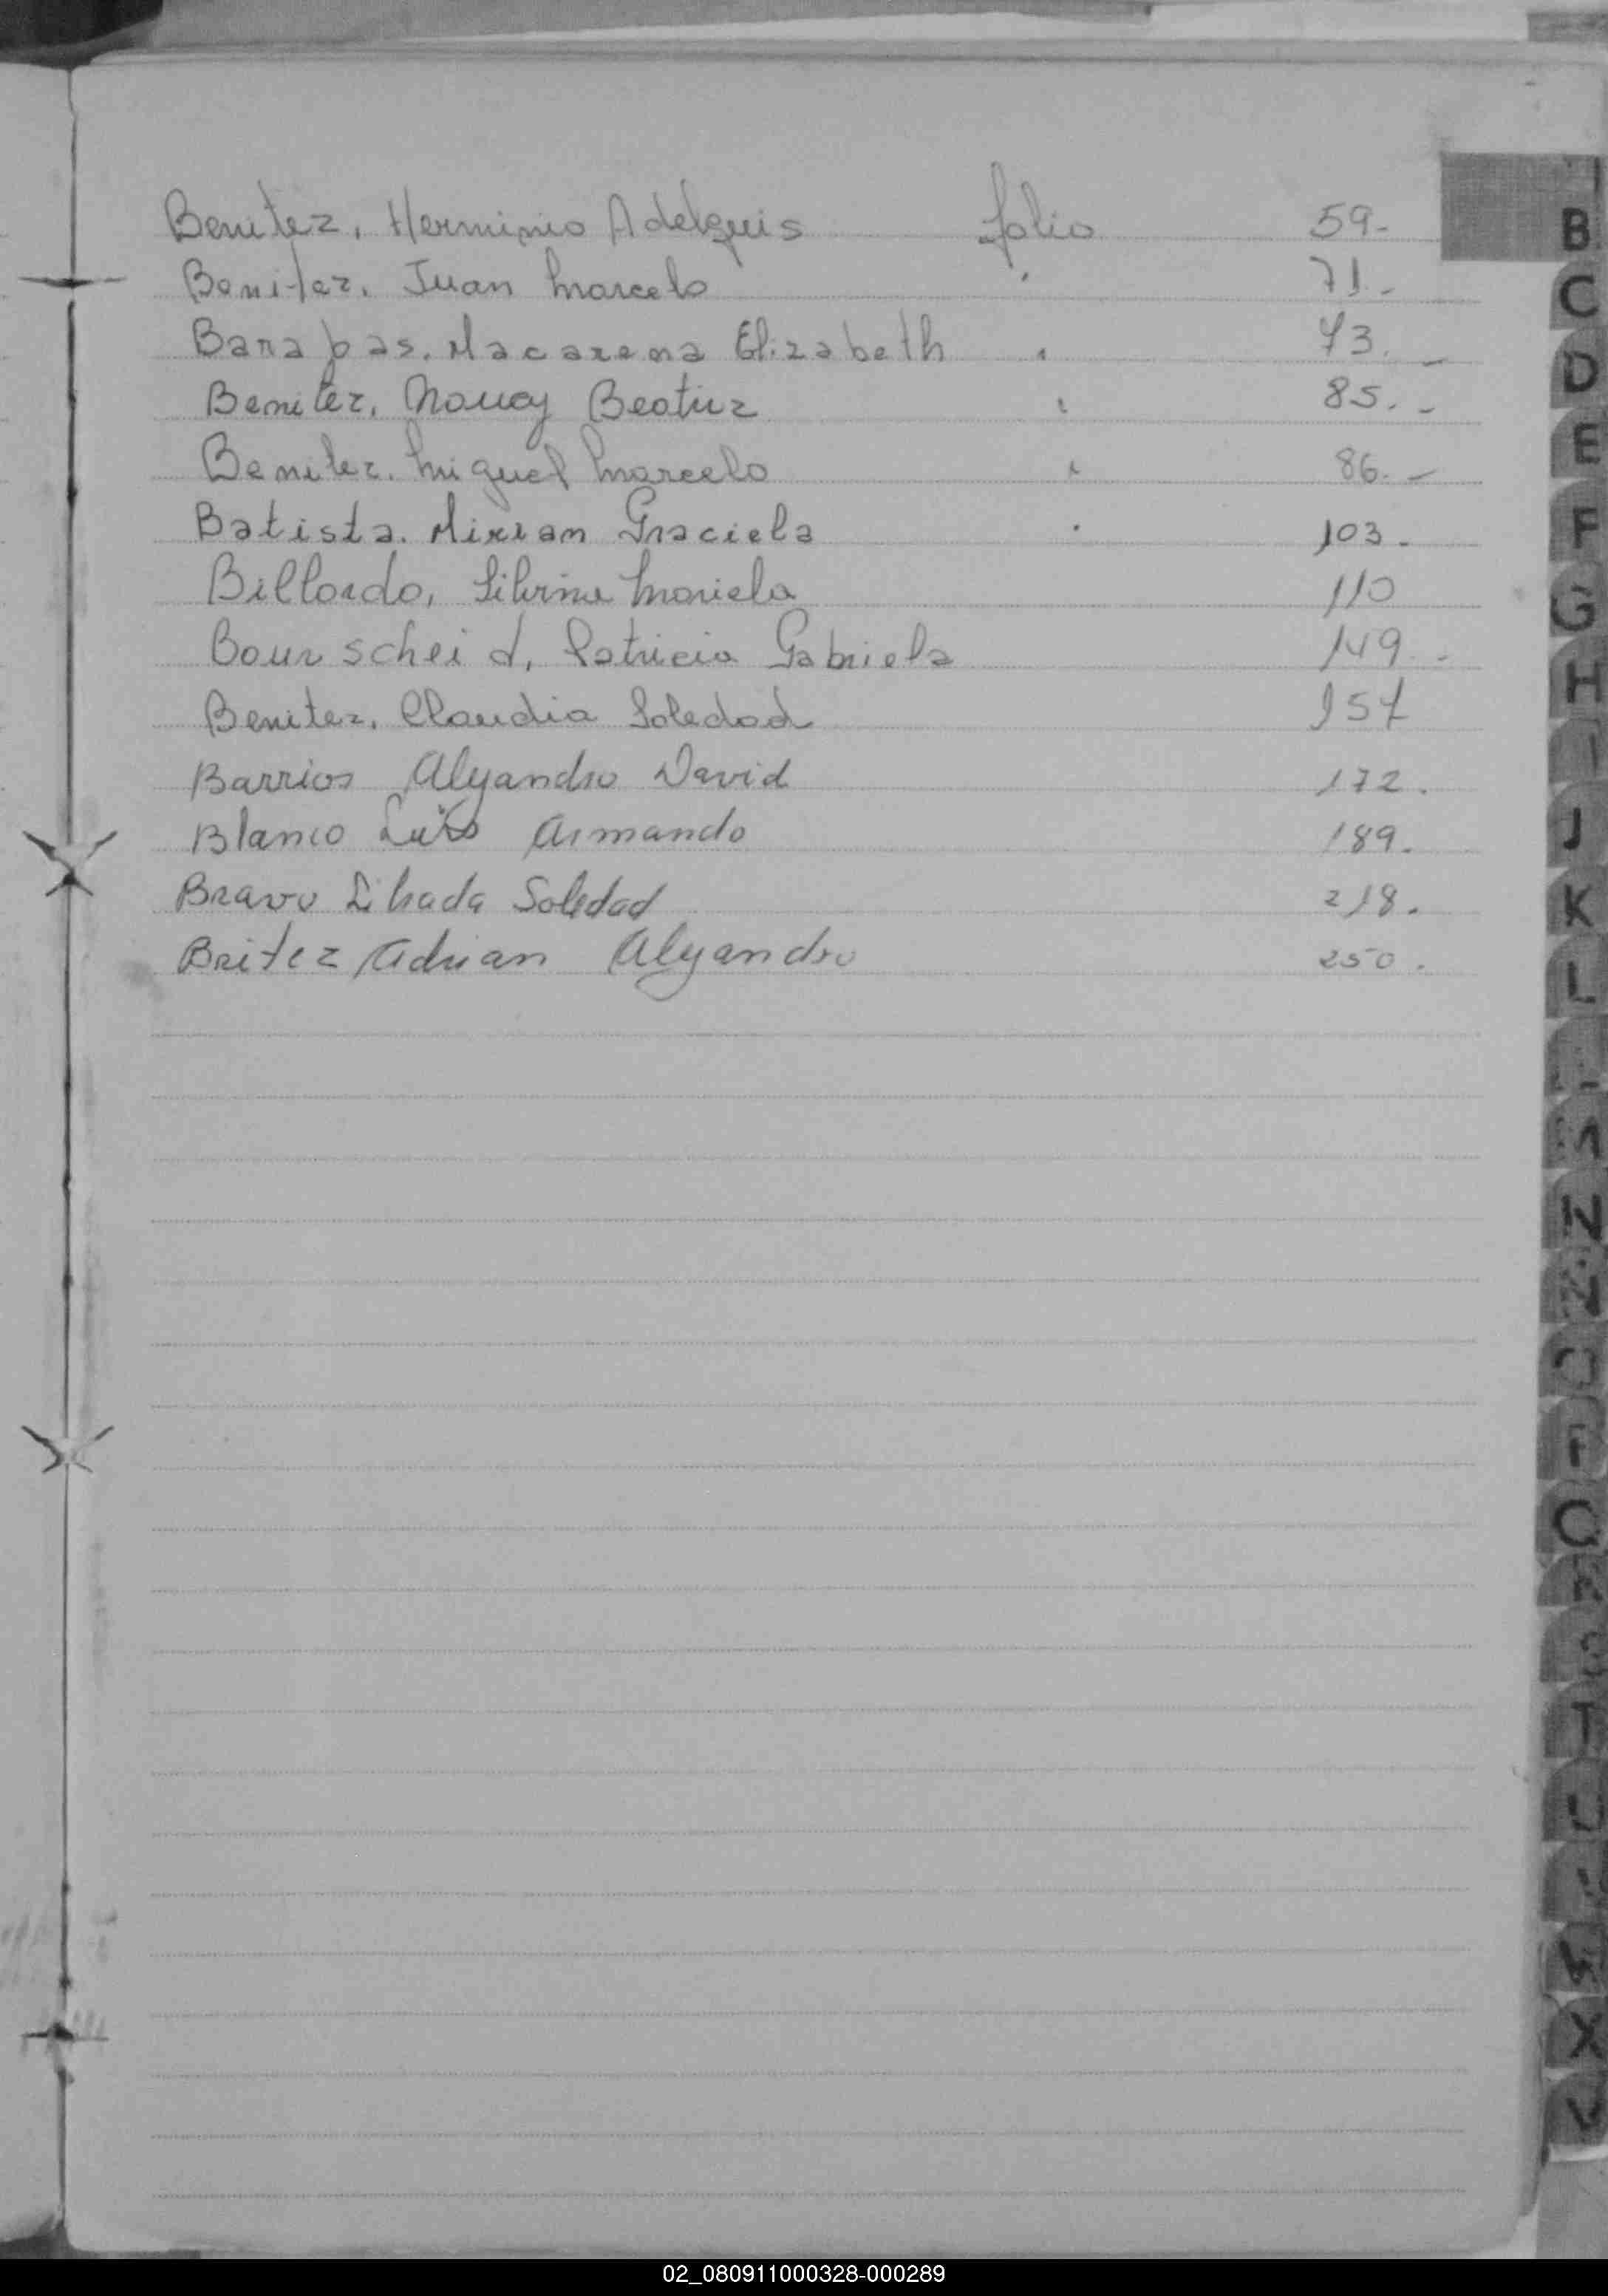 Benitez, Herminio Adelquis folio 59.-
Benitez, Juan Marcelo " 71.-
Barabas, Macarena Elizabeth " 73.-
Benitez, Nancy Beatriz " 85.-
Benitez, Miguel Marcelo " 86.-
Batista, Mirian Graciela " 103.-
Billordo, Silvina Mariela 110
Bourscheid, Patricia Gabriela 149.-
Benitez, Claudia Soledad 157
Barrios Alejandro David 172.
Blanco Luis Armando 189.
Bravo Soledad 218.
Britez Adrian Alejandro 250.
B
C
D
E
F
G
H
I
J
K
L
N
O
P
Q
R
S
T
U
X
02_080911000328-000289